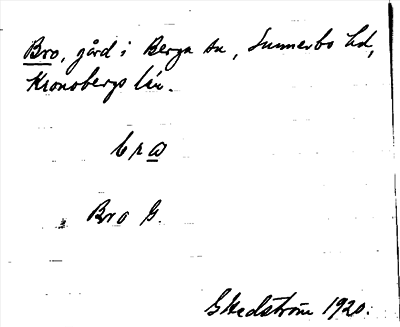 Bro, gård i Berga sn, Sunnerbo hd,
Kronobergs län.
bro
Bro G.
G Hedström 1920.